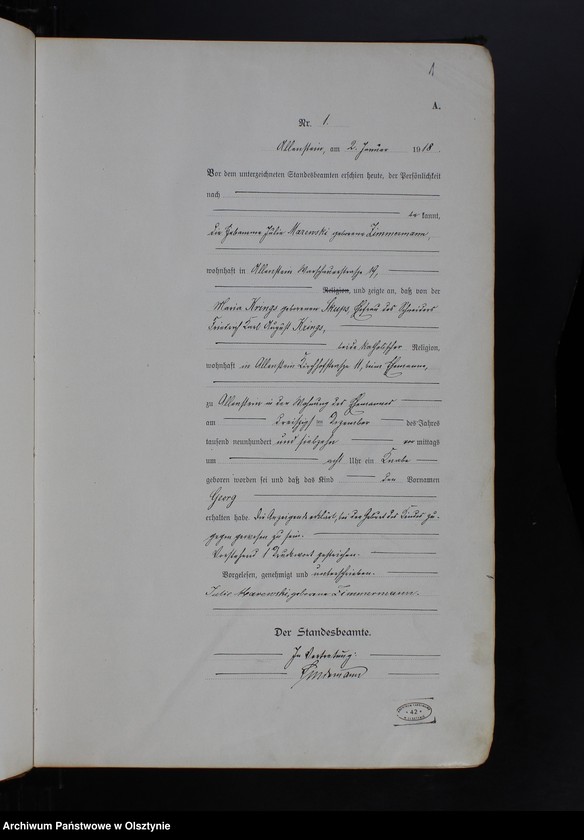 1
A.
Nr. 1.
Allenstein, am 2. Januar 1918.
Vor dem unterzeichneten Standesbeamten erschien heute, der Persönlichkeit
nach
be kannt,
die Hebamme Julie Marewski geborene Zimmermann,
wohnhaft in Allenstein Warschauerstraße
Religion, und zeigte an, daß von der
Maria Krings geborenen Skups, Ehefrau des Schneiders
Friedrich Karl August Krings,
beide katholischer Religion,
wohnhaft in Allenstein Kirchhofstraße 11, beim Ehemanne,
zu Allenstein in der Wohnung des Ehemannes
am dreißigsten Dezember des Jahres
tausend neunhundert und siebzehn vor mittags
um acht Uhr ein Knabe
geboren worden sei und daß das Kind den Vornamen
Georg
erhalten habe. Die Anzeigende erklärt, bei der Geburt des Kindes zu-
gegen gewesen zu sein.
Vorstehend 1 Druckwort gestrichen.
Vorgelesen, genehmigt und unterschrieben.
Julie Marewski, geborene Zimmermann.
Der Standesbeamte.
In Vertretung:
Lindemann
42
Archiwum Państwowe w Olsztynie